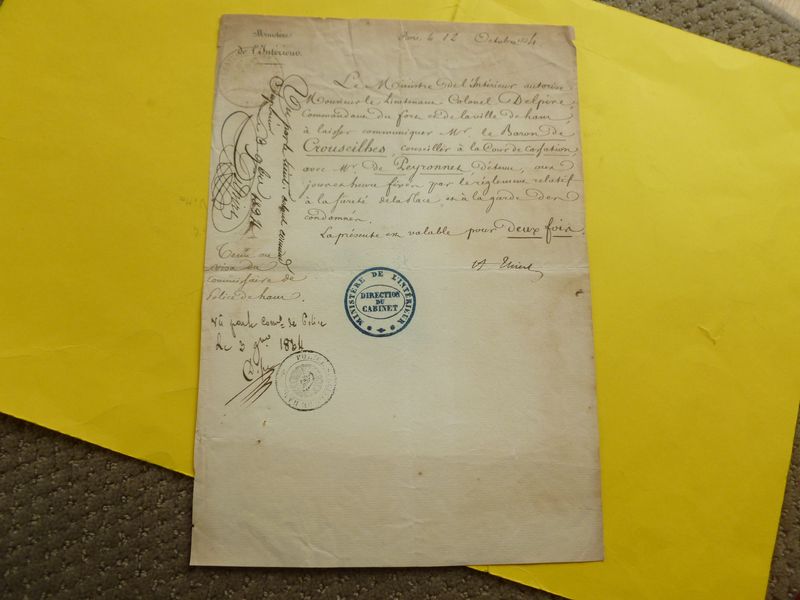 Ministère
de l'Intérieur.
Paris le 12 Octobre 1834
Le Ministre de l'Intérieur autorise
Monsieur le Lieutenant Colonel Delpire
Commandant du fort et de la ville de ham,
à laisser communiquer Mr. le Baron de
Crouseilhes, conseiller à la Cour de cassation,
avec Mr. de Peyronnet détenu, aux
jours et heure fixés par le règlement relatif
à la sureté de la Place et à la garde des
condamnés.
La présente est valable pour deux fois.
A Thiers
MINISTÈRE DE L'INTÉRIEUR
DIRECTION
DU
CABINET
Vu par le lieut. colonel
3 9bre 1834
Delpire
visa du
Commissaire de
Police de ham.
Vu par le Comre de Police
Le 3 9bre 1834
POLICE